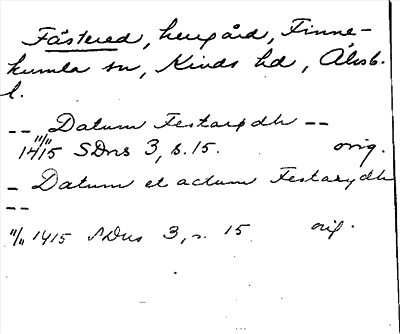 Fästered, herrgård, Finne-
kumla sn, Kinds hd, Älvsb.
l.
-- Datum Festarydh --
11/11 1415 SDns 3, s. 15. orig.
- Datum et actum Festarydh
--
11/11 1415 SDns 3, s. 15 orig.